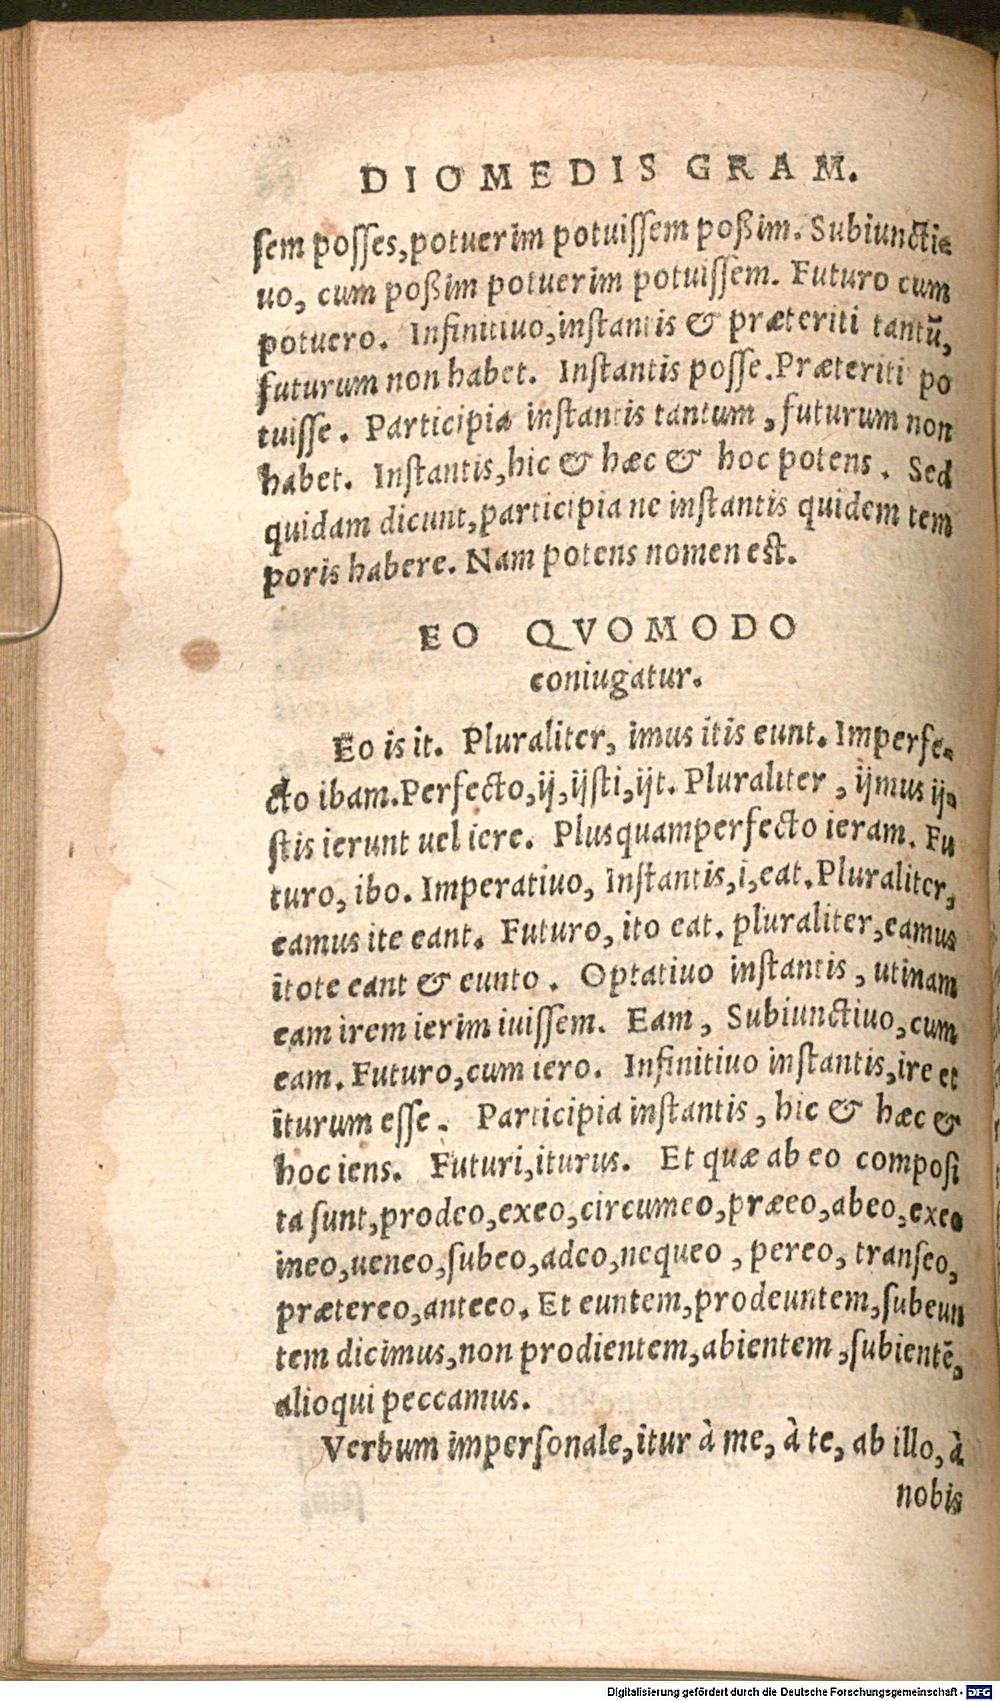 DIOMEDIS GRAM.
ſem poſſes,potuerim potuiſſem poßim. Subiuncti-
uo, cum poßim potuerim potuiſſem. Futuro cum
potuero. Infinitiuo,inſtantis & præteriti tantũ,
futurum non habet. Inſtantis poſſe.Præteriti po
tuiſſe. Participia inſtantis tantum, futurum non
habet. Inſtantis,hic & hæc & hoc potens. Sed
quidam dicunt,participia ne inſtantis quidem tem
poris habere. Nam potens nomen eſt.
EO QVOMODO
coniugatur.
Eo is it. Pluraliter, imus itis eunt. Imperfe-
cto ibam.Perfecto,ij,ijſti,ijt. Pluraliter, ijmus ij-
ſtis ierunt uel iere. Plusquamperfecto ieram. Fu
turo, ibo. Imperatiuo, Inſtantis,i,eat.Pluraliter,
eamus ite eant. Futuro, ito eat. pluraliter,eamus
itote eant & eunto. Optatiuo inſtantis, utinam
eam irem ierim iuiſſem. Eam, Subiunctiuo,cum
eam. Futuro,cum iero. Infinitiuo inſtantis,ire et
iturum eſſe. Participia inſtantis, hic & hæc &
hoc iens. Futuri,iturus. Et quæ ab eo compoſi
ta ſunt,prodeo,exeo,circumeo,præeo,abeo,exeo
ineo,ueneo,ſubeo,adeo,nequeo, pereo, tranſeo,
prætereo,anteeo. Et euntem,prodeuntem,ſubeun
tem dicimus,non prodientem,abientem,ſubientẽ,
alioqui peccamus.
Verbum imperſonale,itur à me, à te, ab illo, à
nobis
Digitalisierung gefördert durch die Deutsche Forschungsgemeinschaft - DFG